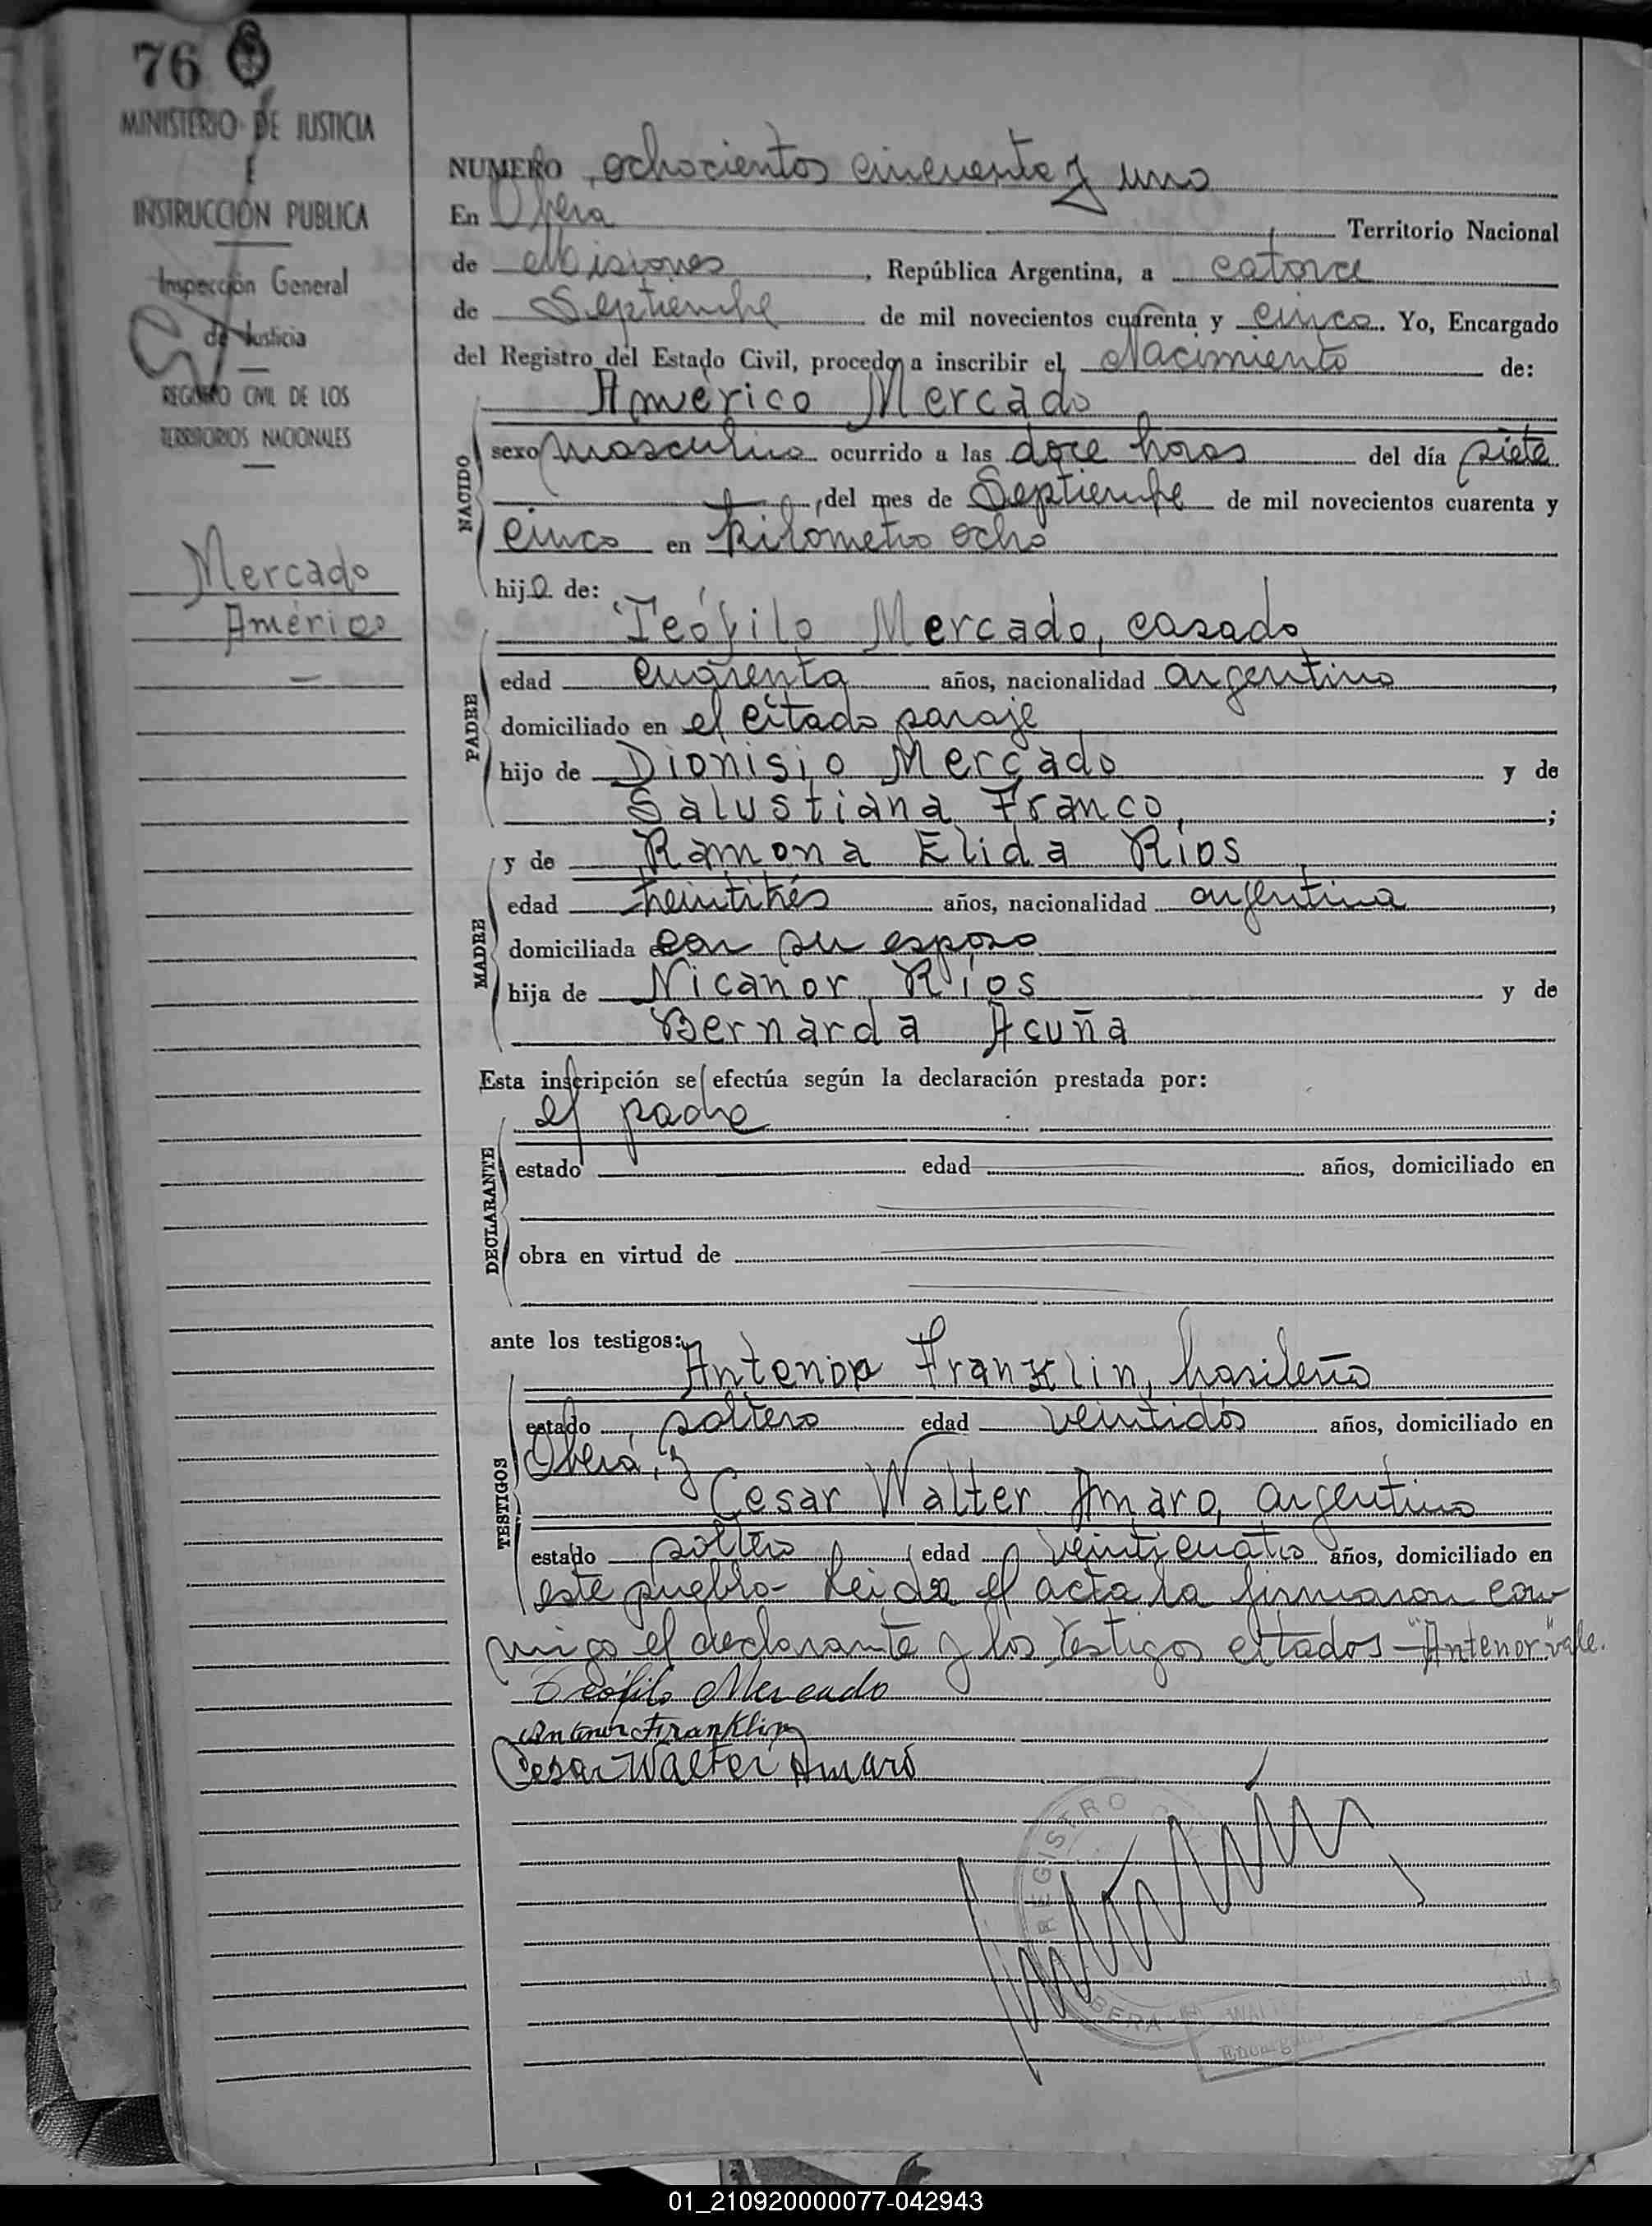 76
MINISTERIO DE JUSTICIA
E
INSTRUCCIÓN PUBLICA
Inspección General
de Justicia
REGISTRO CIVIL DE LOS
TERRITORIOS NACIONALES
Mercado
Américo
NUMERO ochocientos cincuenta y uno
En Oberá Territorio Nacional
de Misiones, República Argentina, a catorce
de Septiembre de mil novecientos cuarenta y cinco. Yo, Encargado
del Registro del Estado Civil, procedo a inscribir el Nacimiento de:
Américo Mercado
NACIDO
sexo masculino ocurrido a las doce horas del día siete
, del mes de Septiembre de mil novecientos cuarenta y
cinco en kilómetro ocho
hijo de:
Teófilo Mercado, casado
PADRE
edad cuarenta años, nacionalidad argentino,
domiciliado en el citado paraje
hijo de Dionisio Mercado y de
Salustiana Franco,;
y de Ramona Elida Ríos
MADRE
edad treintitrés años, nacionalidad argentina,
domiciliada con su esposo
hija de Nicanor Ríos y de
Bernarda Acuña
Esta inscripción se efectúa según la declaración prestada por:
el padre
DECLARANTE
estado edad años, domiciliado en
obra en virtud de
ante los testigos:
Antenor Franklin, brasileño
TESTIGOS
estado soltero edad veintidós años, domiciliado en
Oberá, y
Cesar Walter Amaro, argentino
estado soltero edad veinticuatro años, domiciliado en
este pueblo- Leida el acta la firmaron con
migo el declarante y los testigos citados - "Antenor" vale.
Teófilo Mercado
Antenor Franklin
Cesar Walter Amaro
REGISTRO
OBERA
WAL
Encargado
01_210920000077-042943